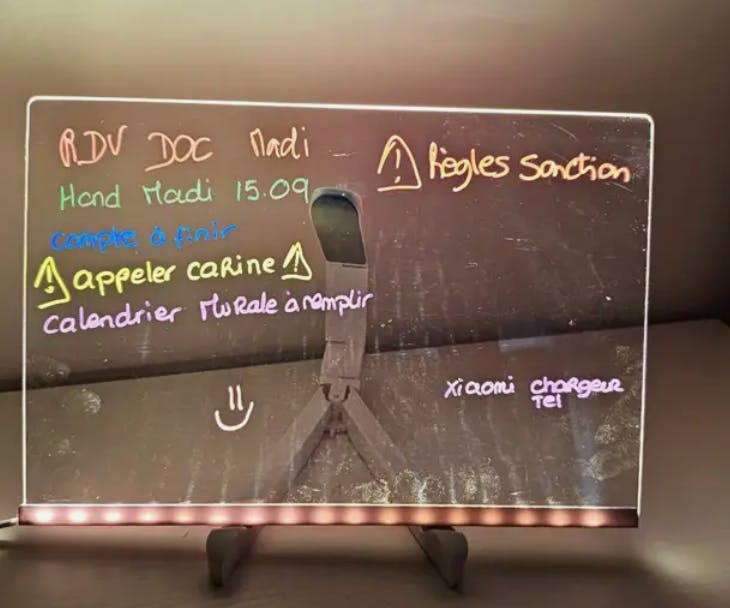 RDV DOC Madi
Hand Madi 15.09
compte à finir
⚠ appeler carine ⚠
calendrier Murale à remplir
⚠ Règles Sanction
Xiaomi chargeur
Tel